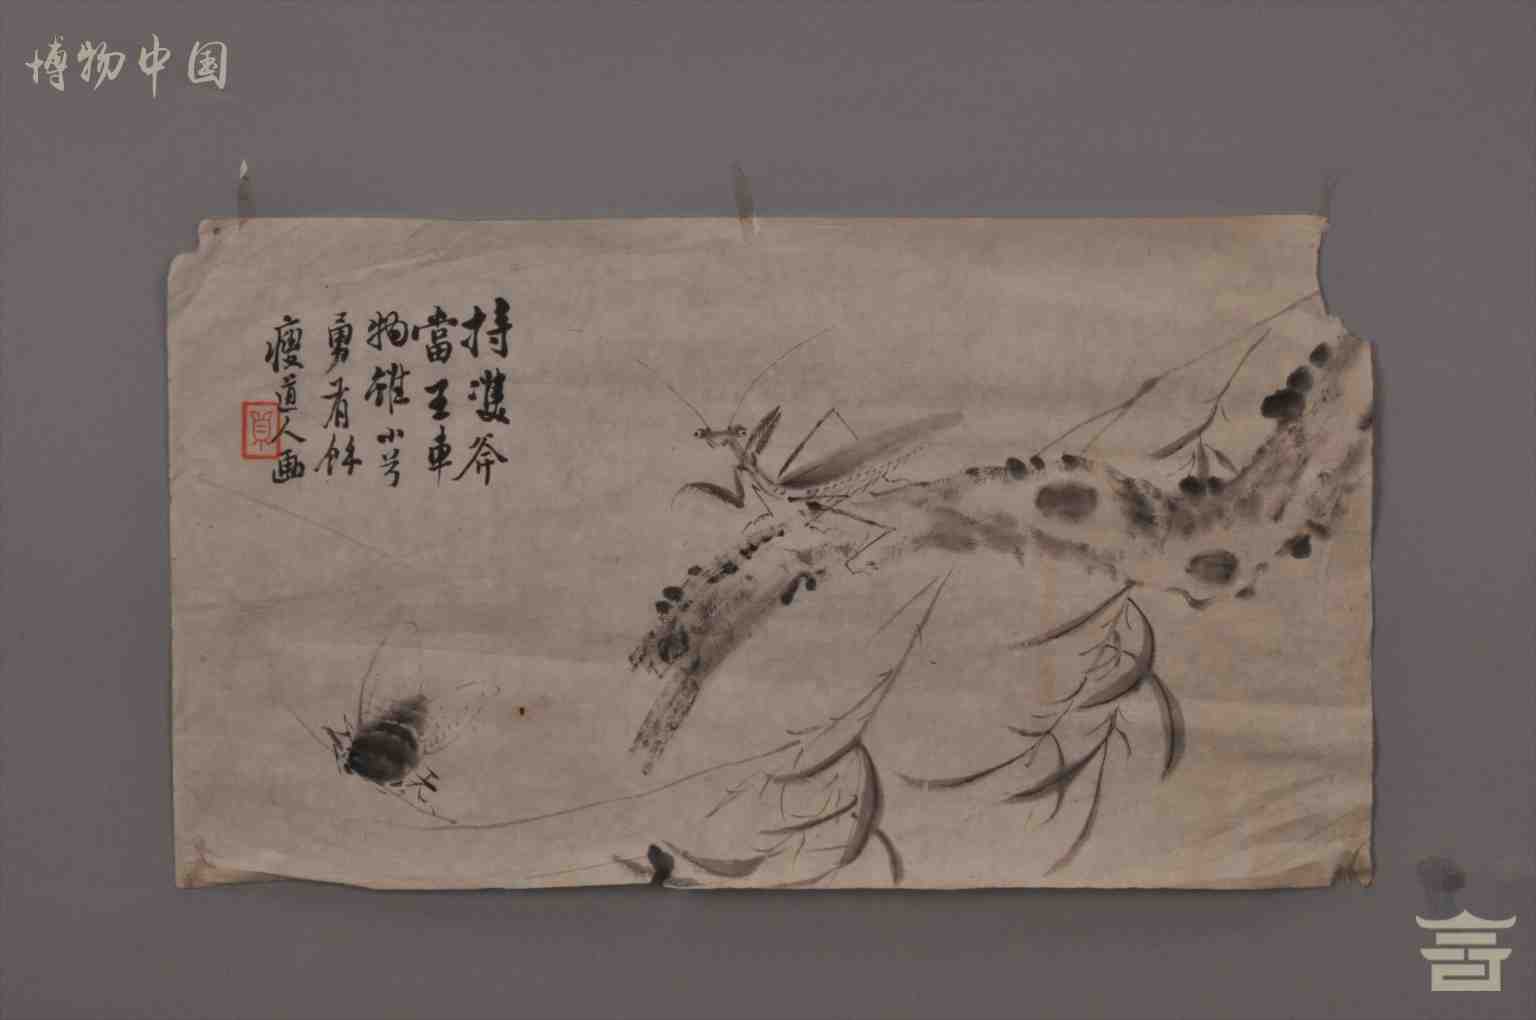 博物中国
持雙斧
當王車
物雖小兮
勇有餘
瘦道人画